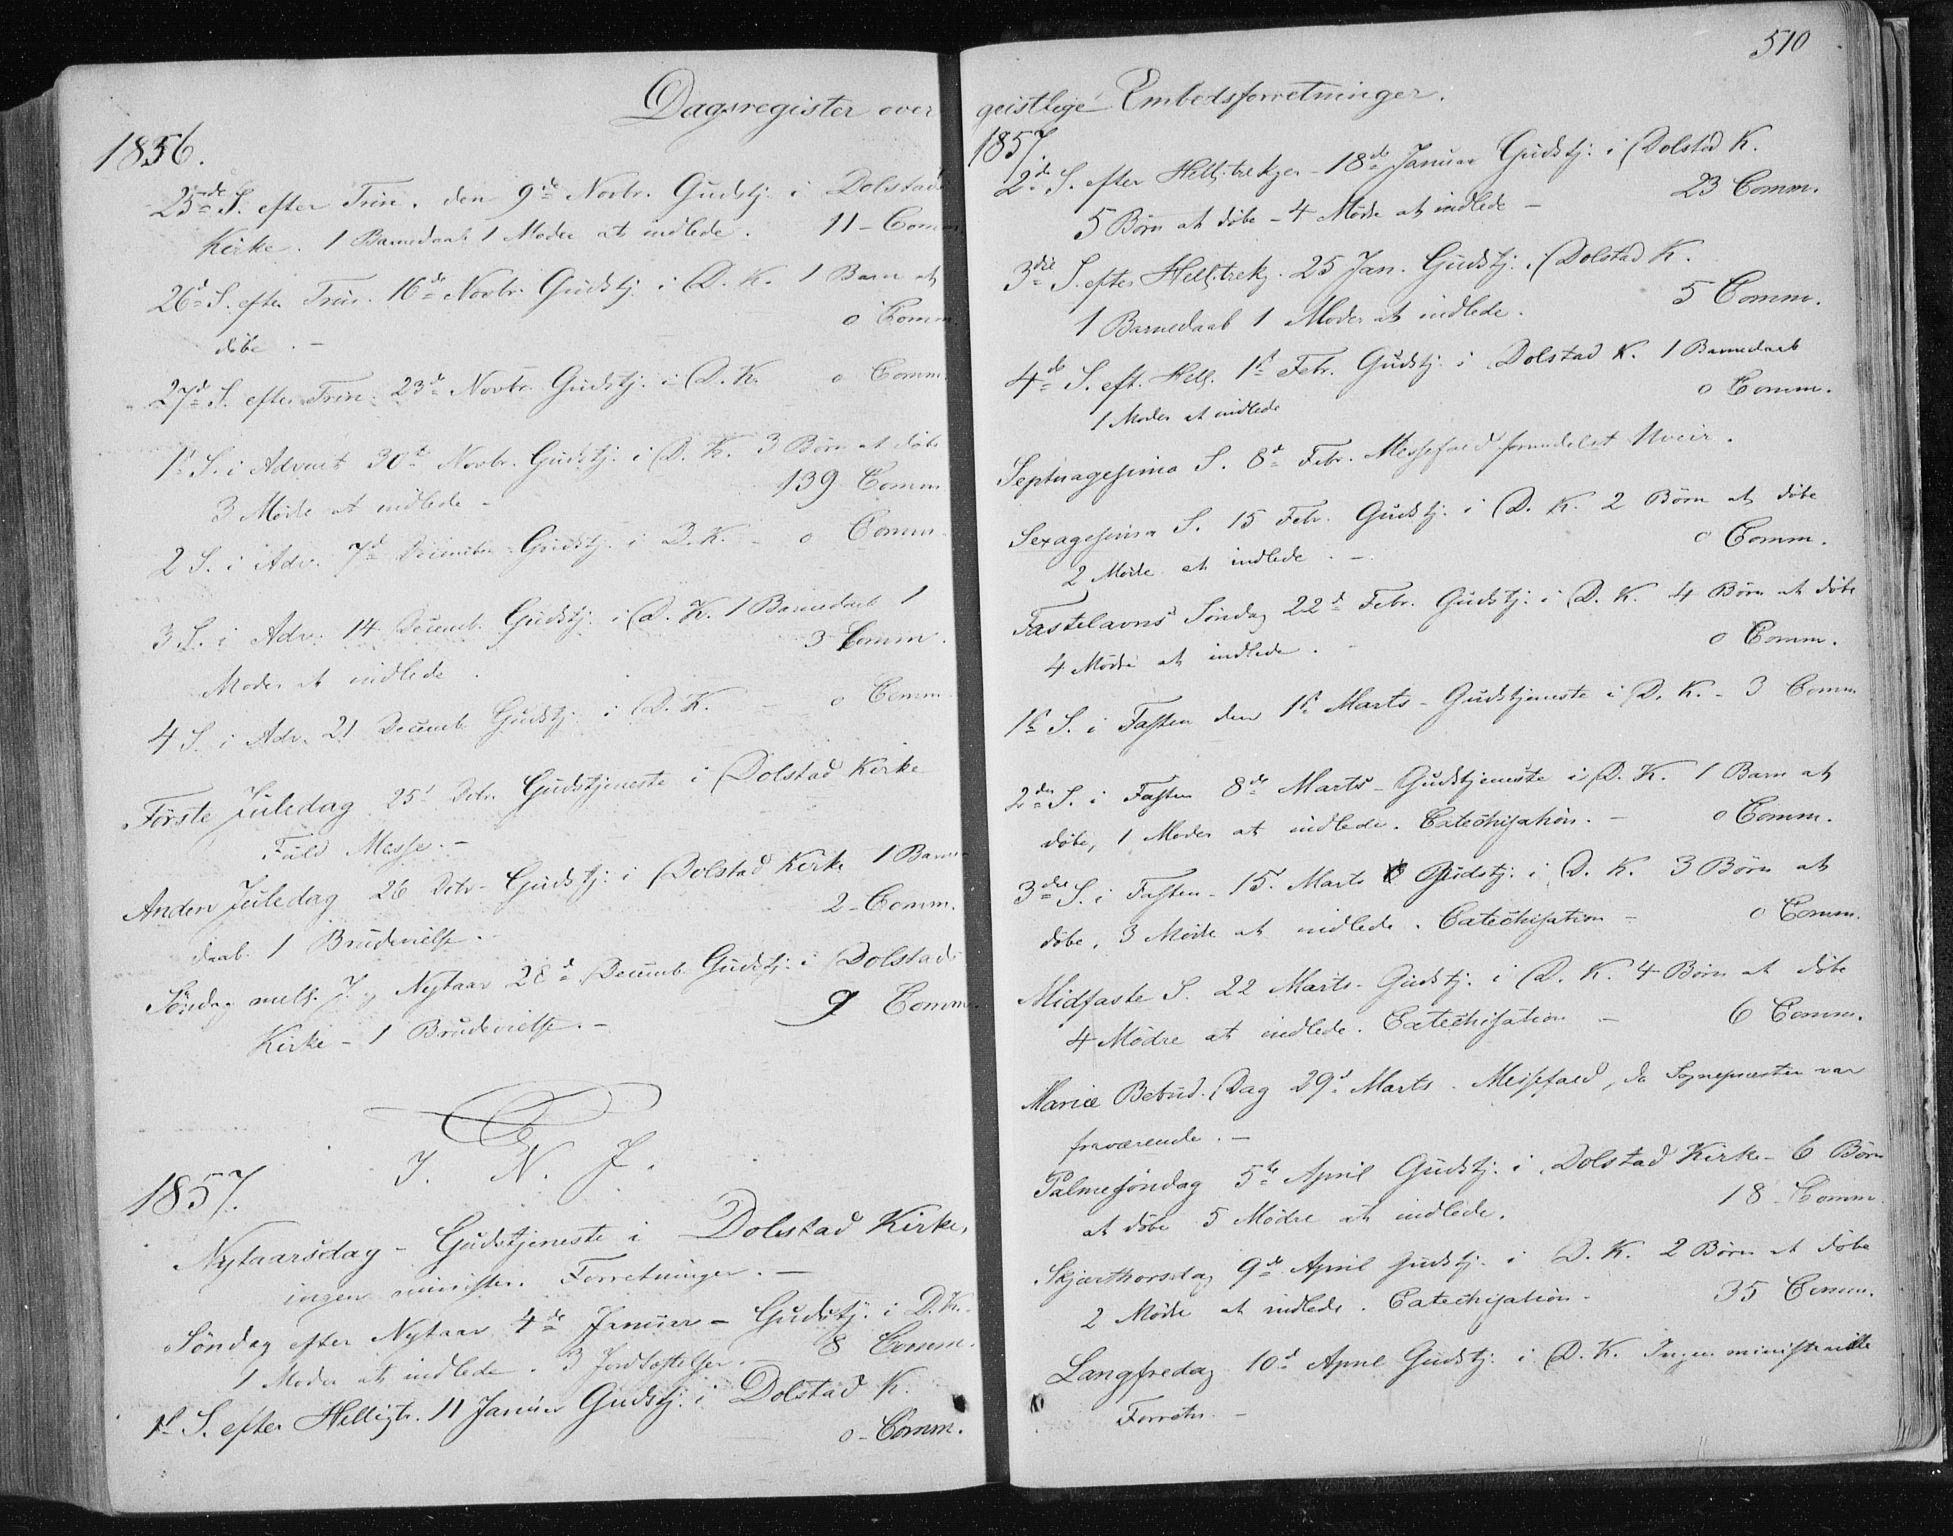 Dagsregister over
1856.
25de S. efter Trin. den 9de Novbr. Gudstj. i Dolstad
Kirke. 1 Barnedaab 1 Moder at indlede. 11 - Comm.
26d S. efter Trin. 16de Novbr. Gudstj. i D. K. 1 Barn at
døbe. - 0 Comm.
27d S. efter Trin. 23de Novbr. Gudstj. i D. K. 0 Comm.
1ste S. i Advent 30te Novbr. Gudstj. i D. K. 3 Børn at døbe
3 Mødre at indlede - 139 Comm.
2 S. i Adv. 7d December - Gudstj. i D. K. - 0 Comm.
3 S. i Adv. 14 Decemb. Gudstj. i D. K. 1 Barnedaab 1
Moder at indlede. 3 Comm.
4 S. i Adv. 21 Decemb. Gudstj. i D. K. - 0 Comm.
Første Juledag 25d Dcbr. Gudstjeneste i Dolstad Kirke
Fuld Messe. -
Anden Juledag 26 Dcbr. Gudstj. i Dolstad Kirke 1 Barne-
daab. 1 Brudevielse. - 2 - Comm.
Søndag mell. J. og Nytaar 28d Decemb. Gudstj. i Dolstad
Kirke - 1 Brudevielse. - 9 Comm.
I. N. J.
1857.
Nytaarsdag - Gudstjeneste i Dolstad Kirke,
ingen minister. Forretninger. -
Søndag efter Nytaar 4de Januar - Gudstj. i D. K. -
1 Moder at indlede. 3 Jordfæstelser. - 8 Comm.
1st S. efter Helligtr. 11 Januar Gudstj. i Dolstad K.
0 - Comm.
510
geistlige Embedsforretninger.
1857.
2de S. efter Hell.trekger - 18de Januar Gudstj. i Dolstad K.
5 Børn at døbe - 4 Mødre at indlede - 23 Comm.
3die S. efter Hell.trekg. 25 Jan. Gudstj. i Dolstad K.
1 Barnedaab 1 Moder at indlede. 5 Comm.
4de S. eft. Hell. 1st Febr. Gudstj. i Dolstad K. 1 Barnedaab
1 Moder at indlede 0 Comm.
Septuagesima S. 8d Febr. Messefald formedelst Uveir.
Sexagesima S. 15 Febr. Gudstj. i D. K. 2 Børn at døbe
2 Mødre at indlede. - 0 Comm.
Fastelavns Søndag 22d Febr. Gudstj. i D. K. 4 Børn at døbe
4 Mødre at indlede. - 0 Comm.
1st S. i Fasten den 1st Marts - Gudstjeneste i D. K. - 3 Comm.
2den S. i Fasten 8de Marts - Gudstjeneste i D. K. 1 Barn at
døbe, 1 Moder at indlede. Catechisation. - 0 Comm.
3die S. i Fasten - 15. Marts Gudstj. i D. K. 3 Børn at
døbe. 3 Mødre at indlede. Catechisation - 0 Comm.
Midfaste S. 22 Marts - Gudstj. i D. K. 4 Børn at døbe
4 Mødre at indlede. Catechisation - 6 Comm.
Mariæ Bebud. Dag 29d Marts. Messefald, da Sognepræsten var
fraværende. -
Palmesøndag 5te April Gudstj. i Dolstad Kirke - 6 Børn
at døbe 5 Mødre at indlede. 18 - Comm.
Skjærthorsdag 9de April Gudstj. i D. K. 2 Børn at døbe
2 Mødre at indlede. Catechisation - 35 Comm.
Langfredag 10d April Gudstj. i D. K. Ingen ministerielle
Forretn. -